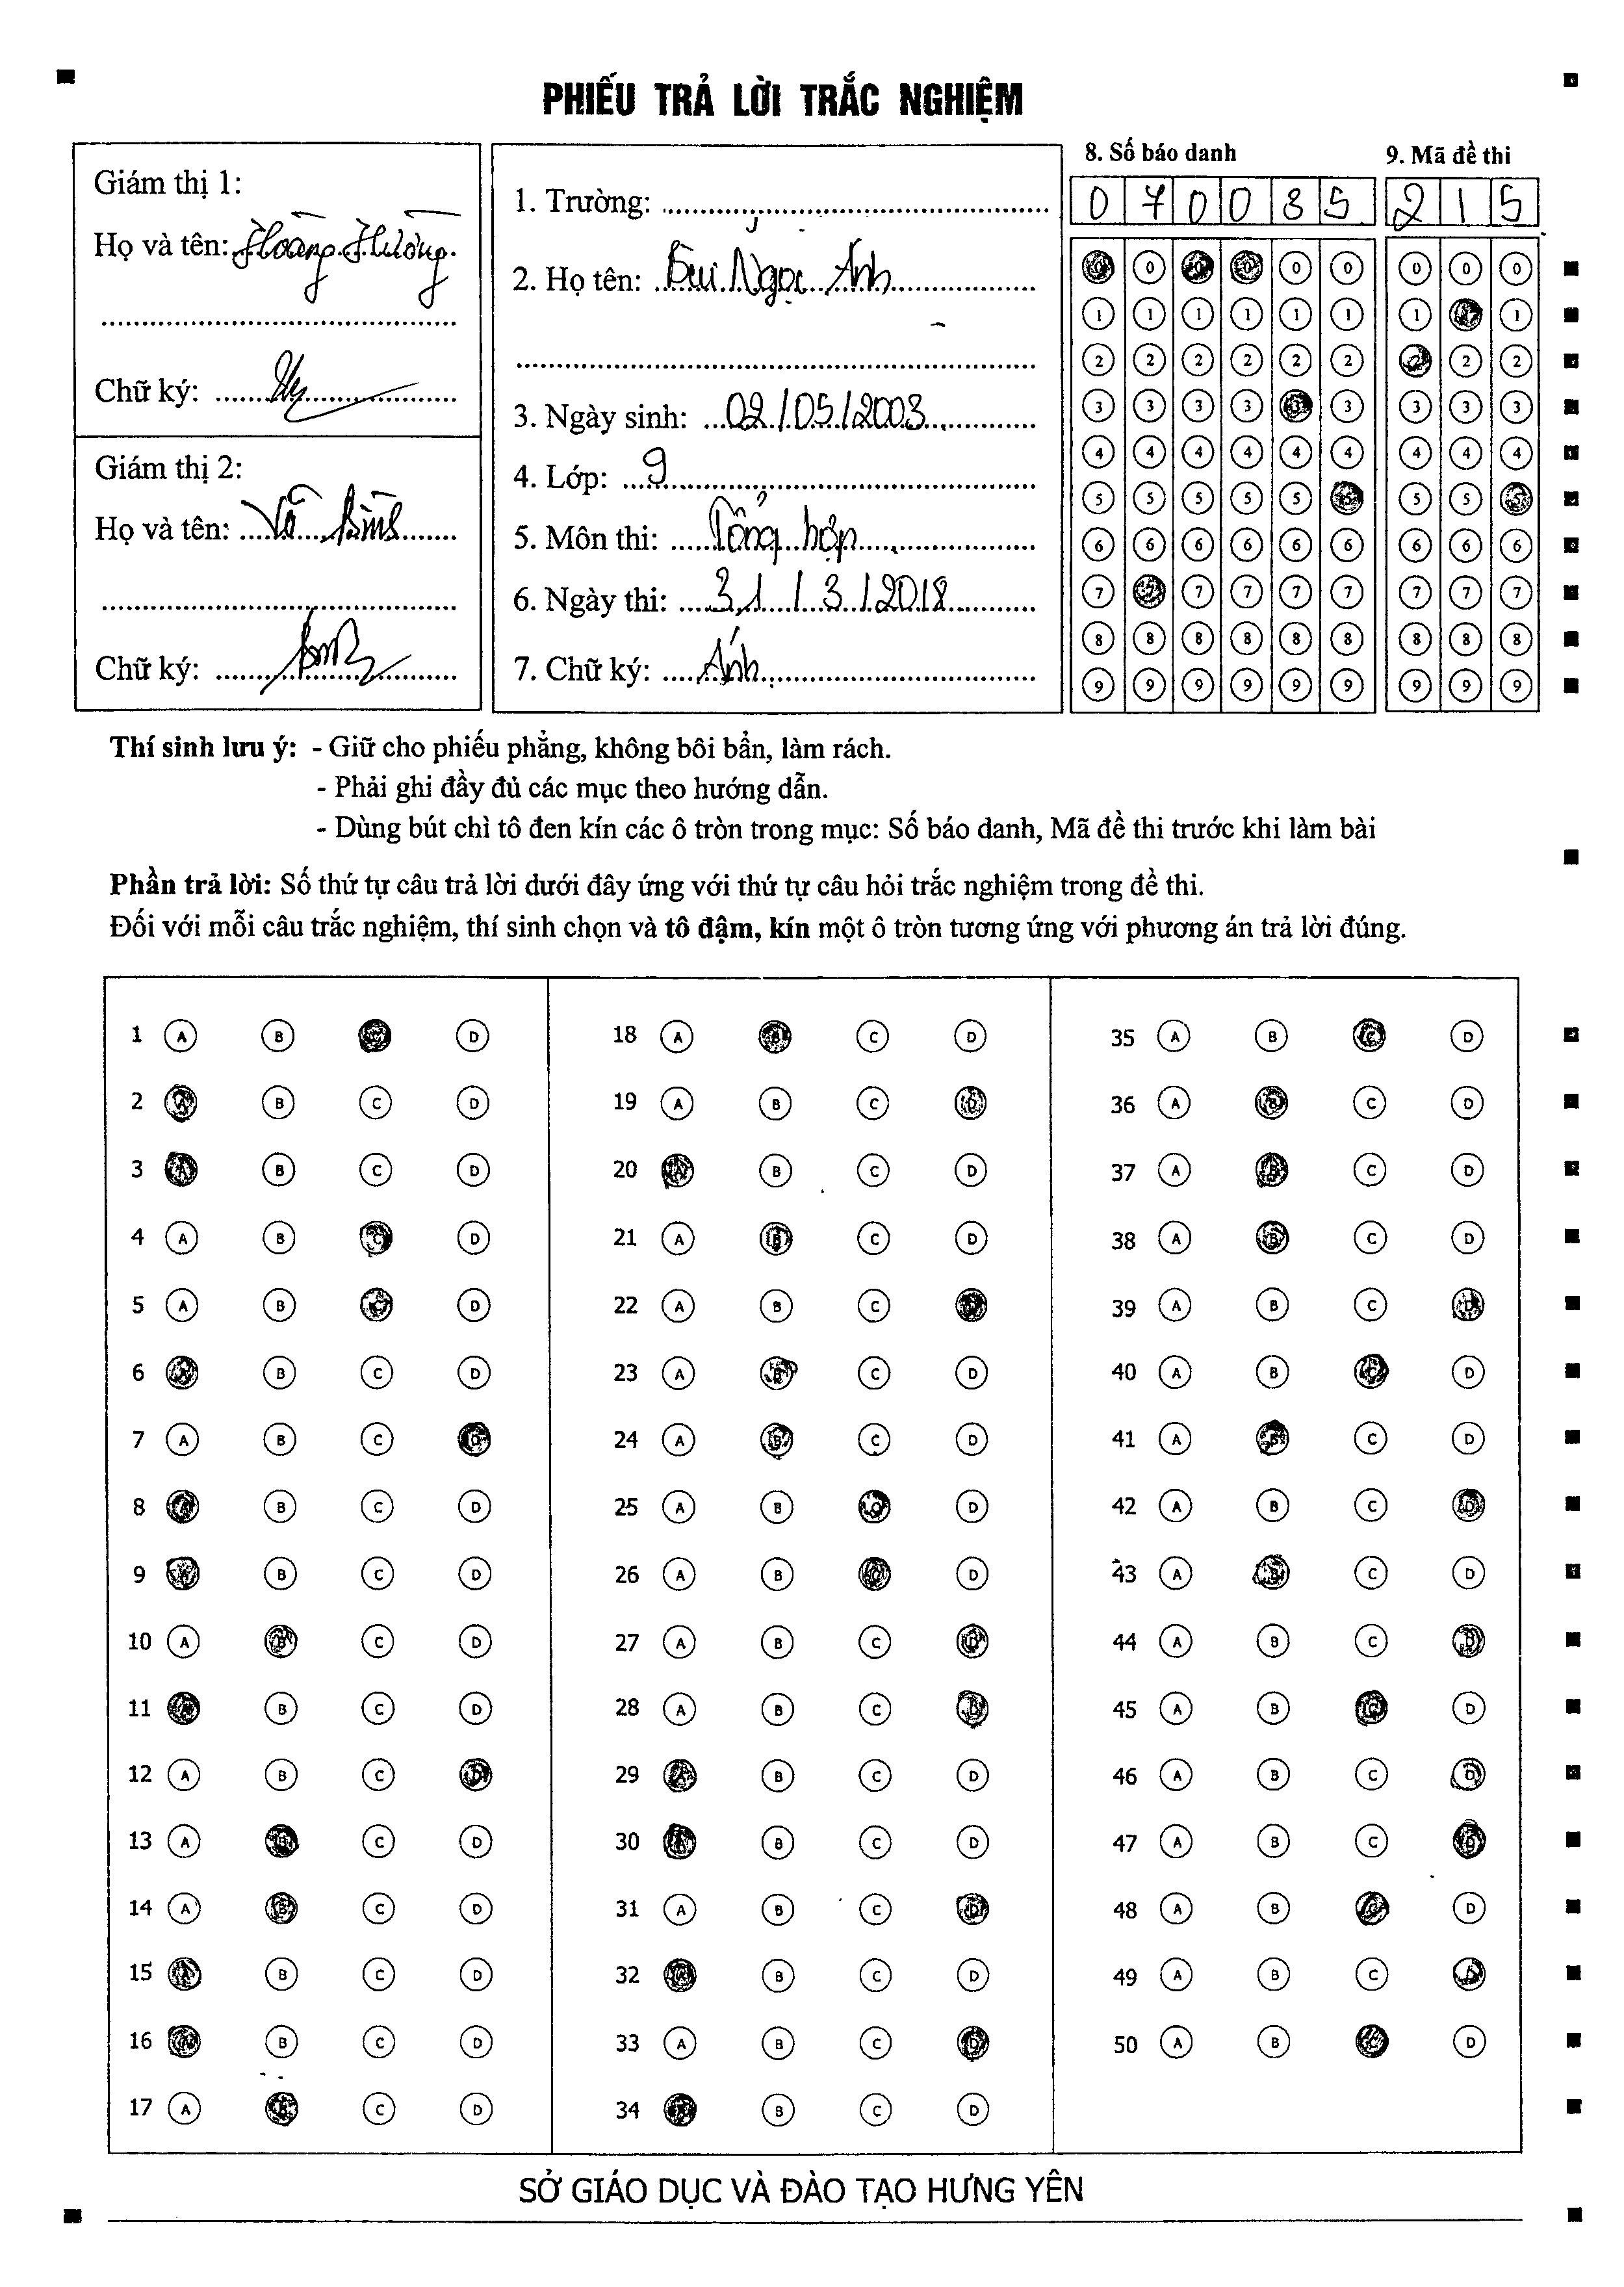 PHIẾU TRẢ LỜI TRẮC NGHIỆM
Giám thị 1:
Họ và tên: Hoàng Hường
Chữ ký:
Giám thị 2:
Họ và tên: Vũ
Chữ ký:
1. Trường:
2. Họ tên: Bùi Ngọc Ánh
3. Ngày sinh: 02/05/2003
4. Lớp: 9
5. Môn thi: Tổng hợp
6. Ngày thi: 31/3/2018
7. Chữ ký: Ánh
8. Số báo danh
0 7 0 0 3 5
0 0 0 0 0 0
1 1 1 1 1 1
2 2 2 2 2 2
3 3 3 3 3 3
4 4 4 4 4 4
5 5 5 5 5 5
6 6 6 6 6 6
7 7 7 7 7 7
8 8 8 8 8 8
9 9 9 9 9 9
9. Mã đề thi
2 1 5
0 0 0
1 1 1
2 2 2
3 3 3
4 4 4
5 5 5
6 6 6
7 7 7
8 8 8
9 9 9
Thí sinh lưu ý: - Giữ cho phiếu phẳng, không bôi bẩn, làm rách.
- Phải ghi đầy đủ các mục theo hướng dẫn.
- Dùng bút chì tô đen kín các ô tròn trong mục: Số báo danh, Mã đề thi trước khi làm bài
Phần trả lời: Số thứ tự câu trả lời dưới đây ứng với thứ tự câu hỏi trắc nghiệm trong đề thi.
Đối với mỗi câu trắc nghiệm, thí sinh chọn và tô đậm, kín một ô tròn tương ứng với phương án trả lời đúng.
1 A B C D
2 A B C D
3 A B C D
4 A B C D
5 A B C D
6 A B C D
7 A B C D
8 A B C D
9 A B C D
10 A B C D
11 A B C D
12 A B C D
13 A B C D
14 A B C D
15 A B C D
16 A B C D
17 A B C D
18 A B C D
19 A B C D
20 A B C D
21 A B C D
22 A B C D
23 A B C D
24 A B C D
25 A B C D
26 A B C D
27 A B C D
28 A B C D
29 A B C D
30 A B C D
31 A B C D
32 A B C D
33 A B C D
34 A B C D
35 A B C D
36 A B C D
37 A B C D
38 A B C D
39 A B C D
40 A B C D
41 A B C D
42 A B C D
43 A B C D
44 A B C D
45 A B C D
46 A B C D
47 A B C D
48 A B C D
49 A B C D
50 A B C D
SỞ GIÁO DỤC VÀ ĐÀO TẠO HƯNG YÊN